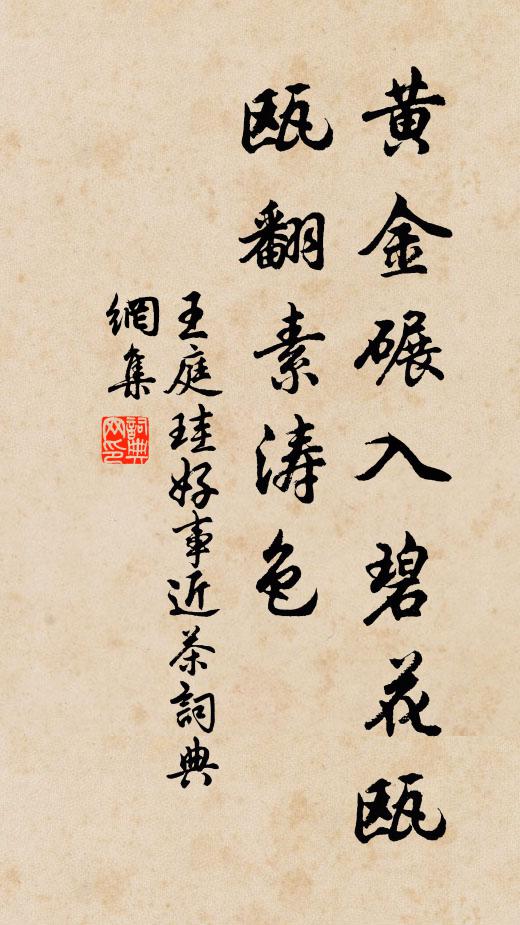 黄金碾入碧花瓯
瓯翻素涛色
王庭珪好事近茶詞典
網集
詞典
网印